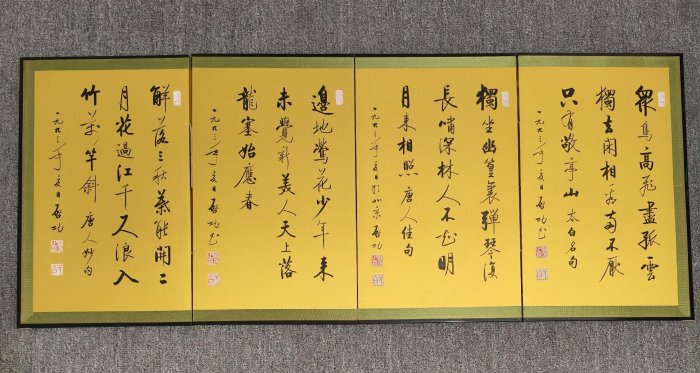 眾鳥高飛盡孤雲
獨去閑相看兩不厭
只有敬亭山 太白名句
一九九三年夏日 啓功
獨坐幽篁裏彈琴復
長嘯深林人不知明
月來相照 唐人佳句
一九九三年夏日於北京 啓功
邊地鶯花少年來
未覺新美人天上落
龍塞始應春
一九九三年夏日 啓功書
解落三秋葉能開二
月花過江千尺浪入
竹萬竿斜 唐人妙句
一九九三年夏日 啓功